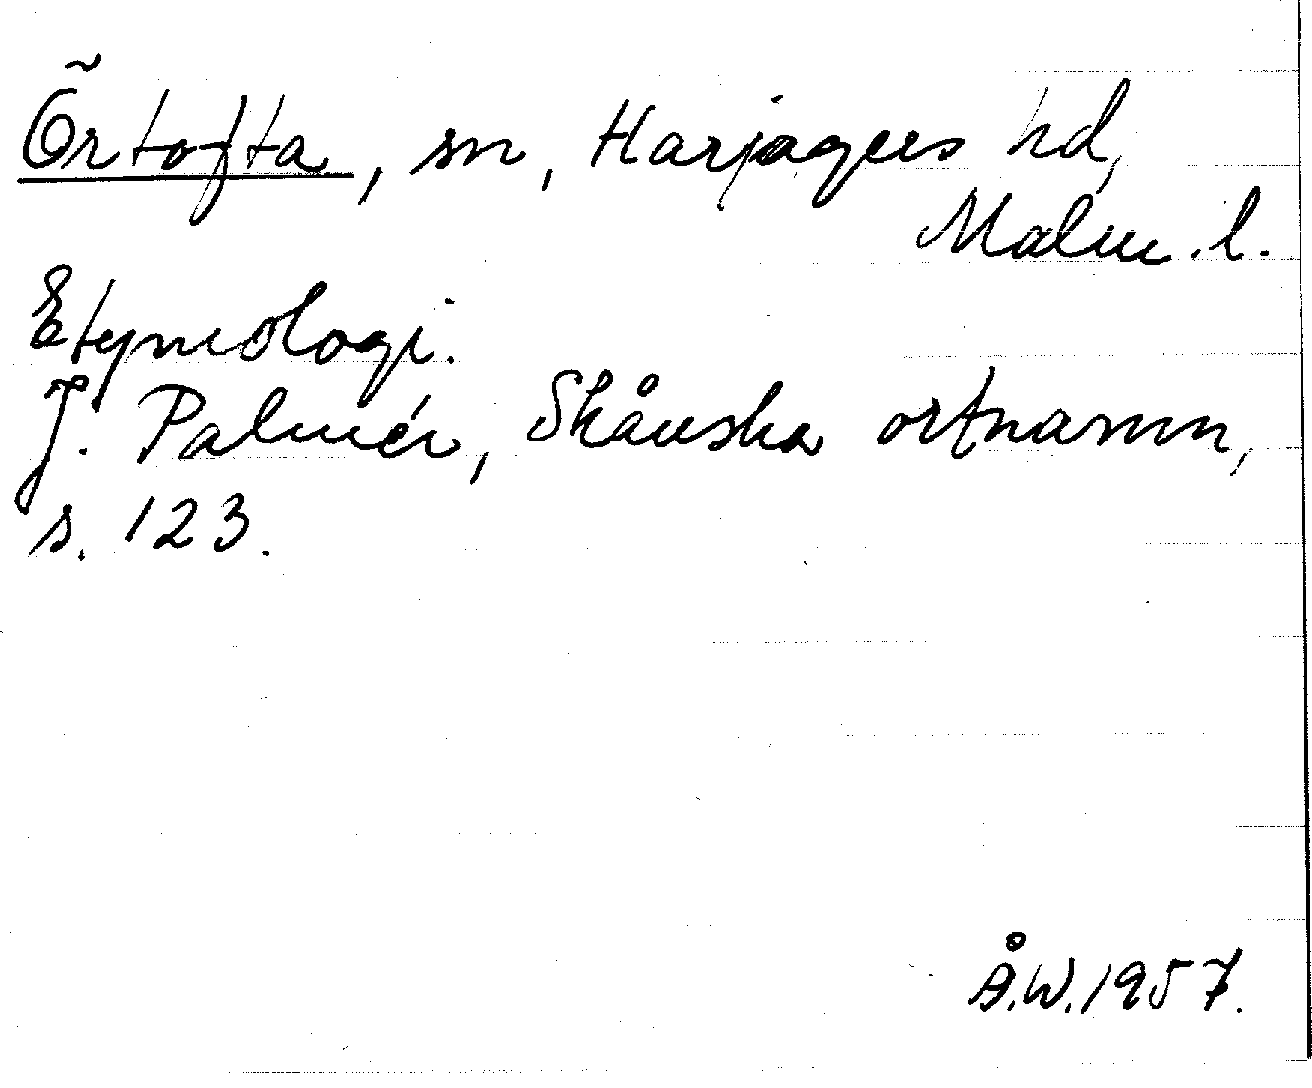 Örtofta, sn, Harjagers hd,
Malm. l.
Etymologi.
J. Palmér, Skånska ortnamn,
s. 123.
Å.W. 1957.